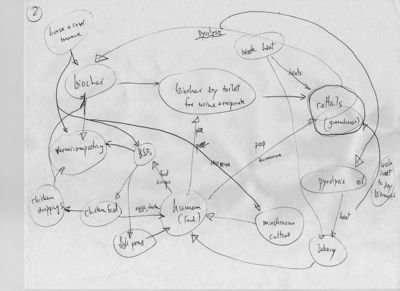 2
horse + cow
manure
pyrolysis
waste heat
biochar
biochar dry toilet
for urine + evaporate
heats
cattails
(greenhouse)
vermicomposting
BSFs
pee
poop
humanure
manure
food
scraps
pyrolysis oil
waste heat
to dry
chicken
droppings
chicken feed
eggs
human
(food)
mushroom
culture
heat
fish pond
bakery